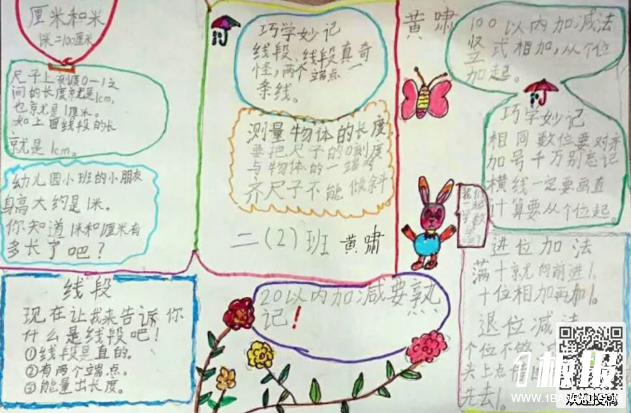 厘米和米
1米=100厘米
尺子上刻度0-1之
间的长度就是1cm,
也就是1厘米。
如上面线段的长
就是1cm.
幼儿园小班的小朋友
身高大约是1米。
你知道1米和厘米有
多长了吧?
线段
现在让我来告诉你
什么是线段吧!
①线段是直的。
②有两个端点。
③能量出长度。
巧学妙记
线段、线段真奇
怪,两个端点一
条线。
测量物体的长度,
要把尺子的0刻度
与物体的一端对
齐尺子不能倾斜
二(2)班 黄啸
20以内加减要熟
记!
黄啸
100以内加减法
竖式相加,从个位
加起。
巧学妙记
相同数位要对齐
加号千万别忘记
横线一定要画直
计算要从个位起
进位加法
满十就向前进1,
十位相加再加1。
退位减法
个位不够
头上点
先去1.
欢迎投稿